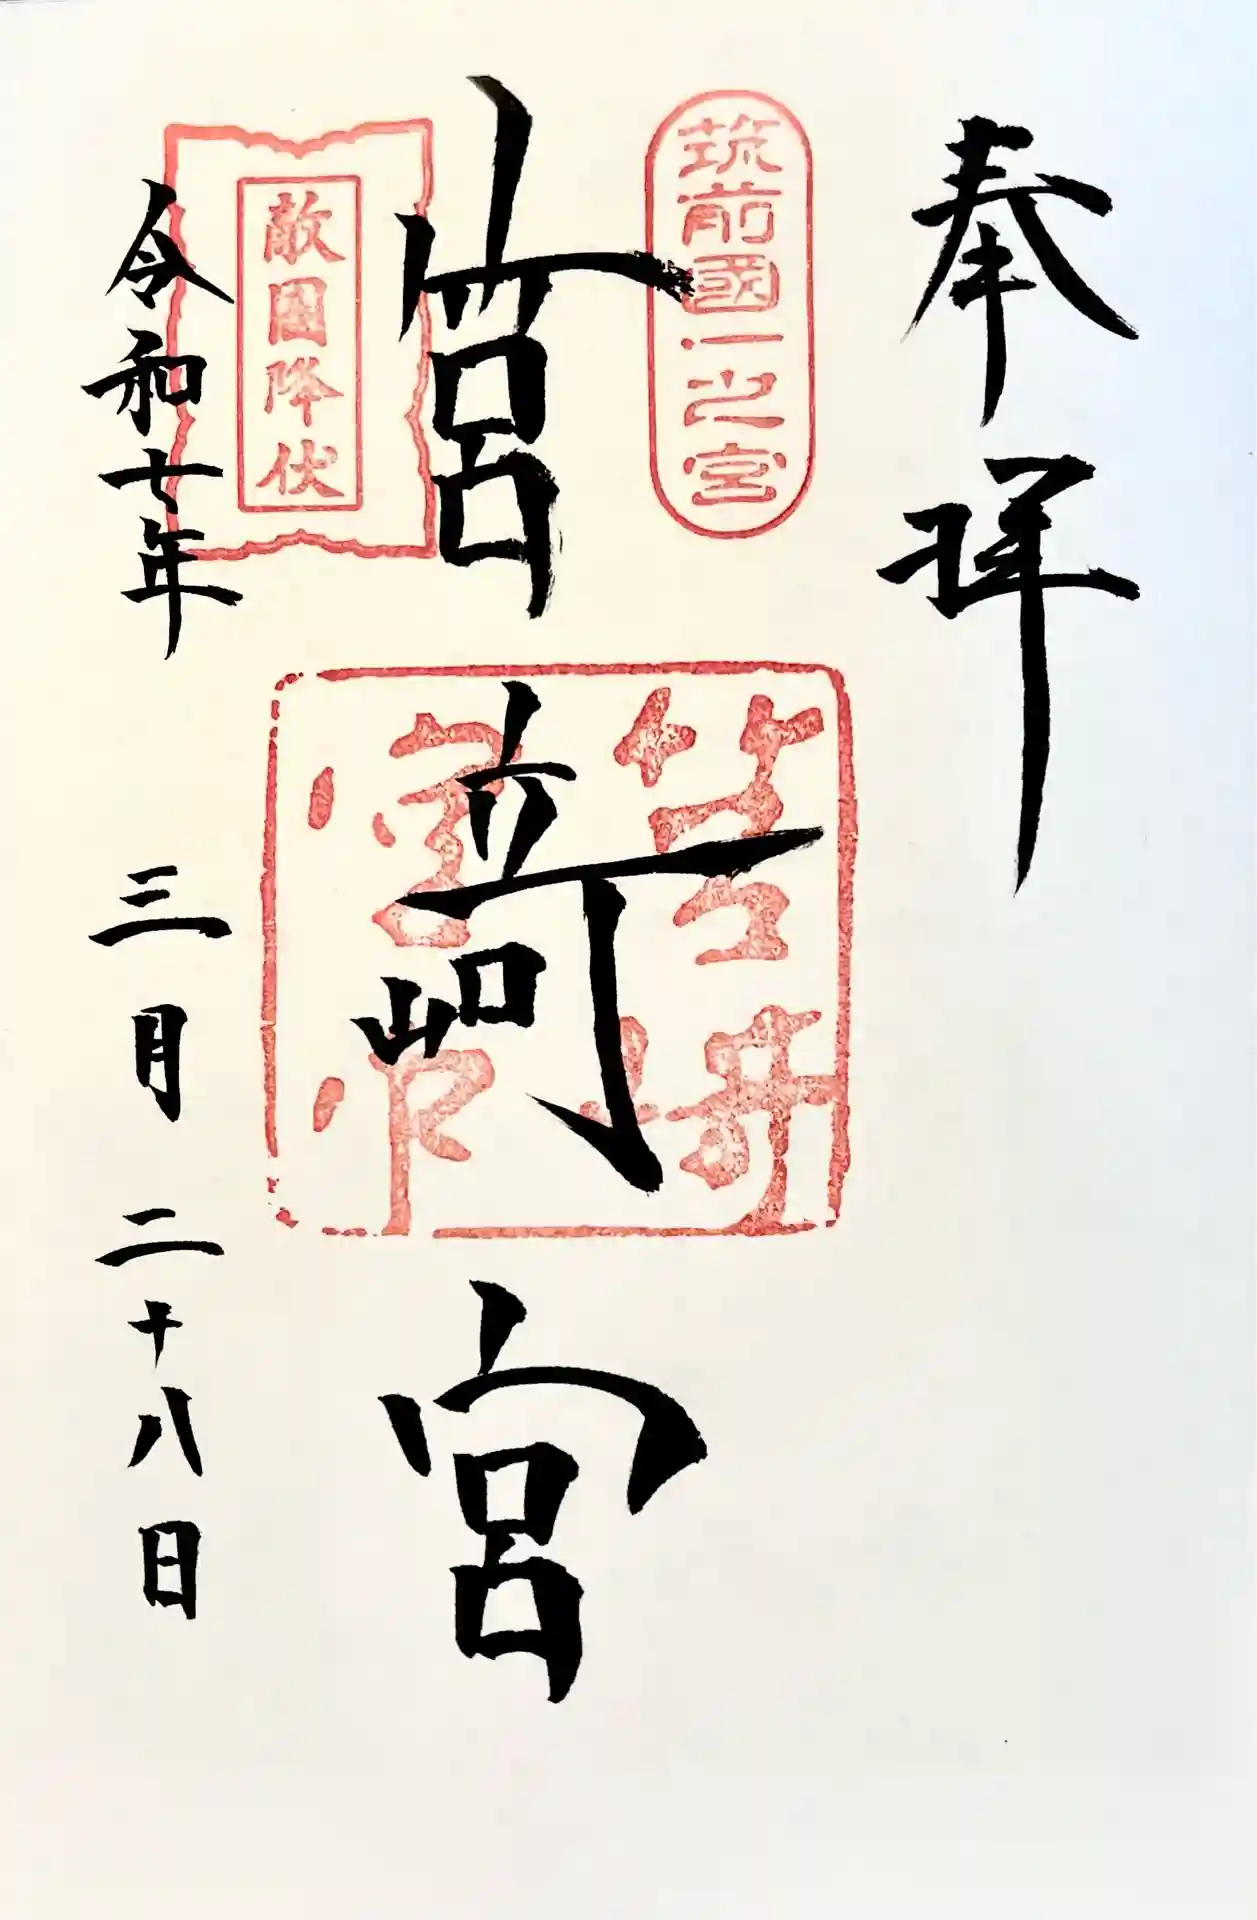 奉拝
筑前國一之宮
筥崎宮
筥埼
宮印
敵國降伏
令和七年三月二十八日